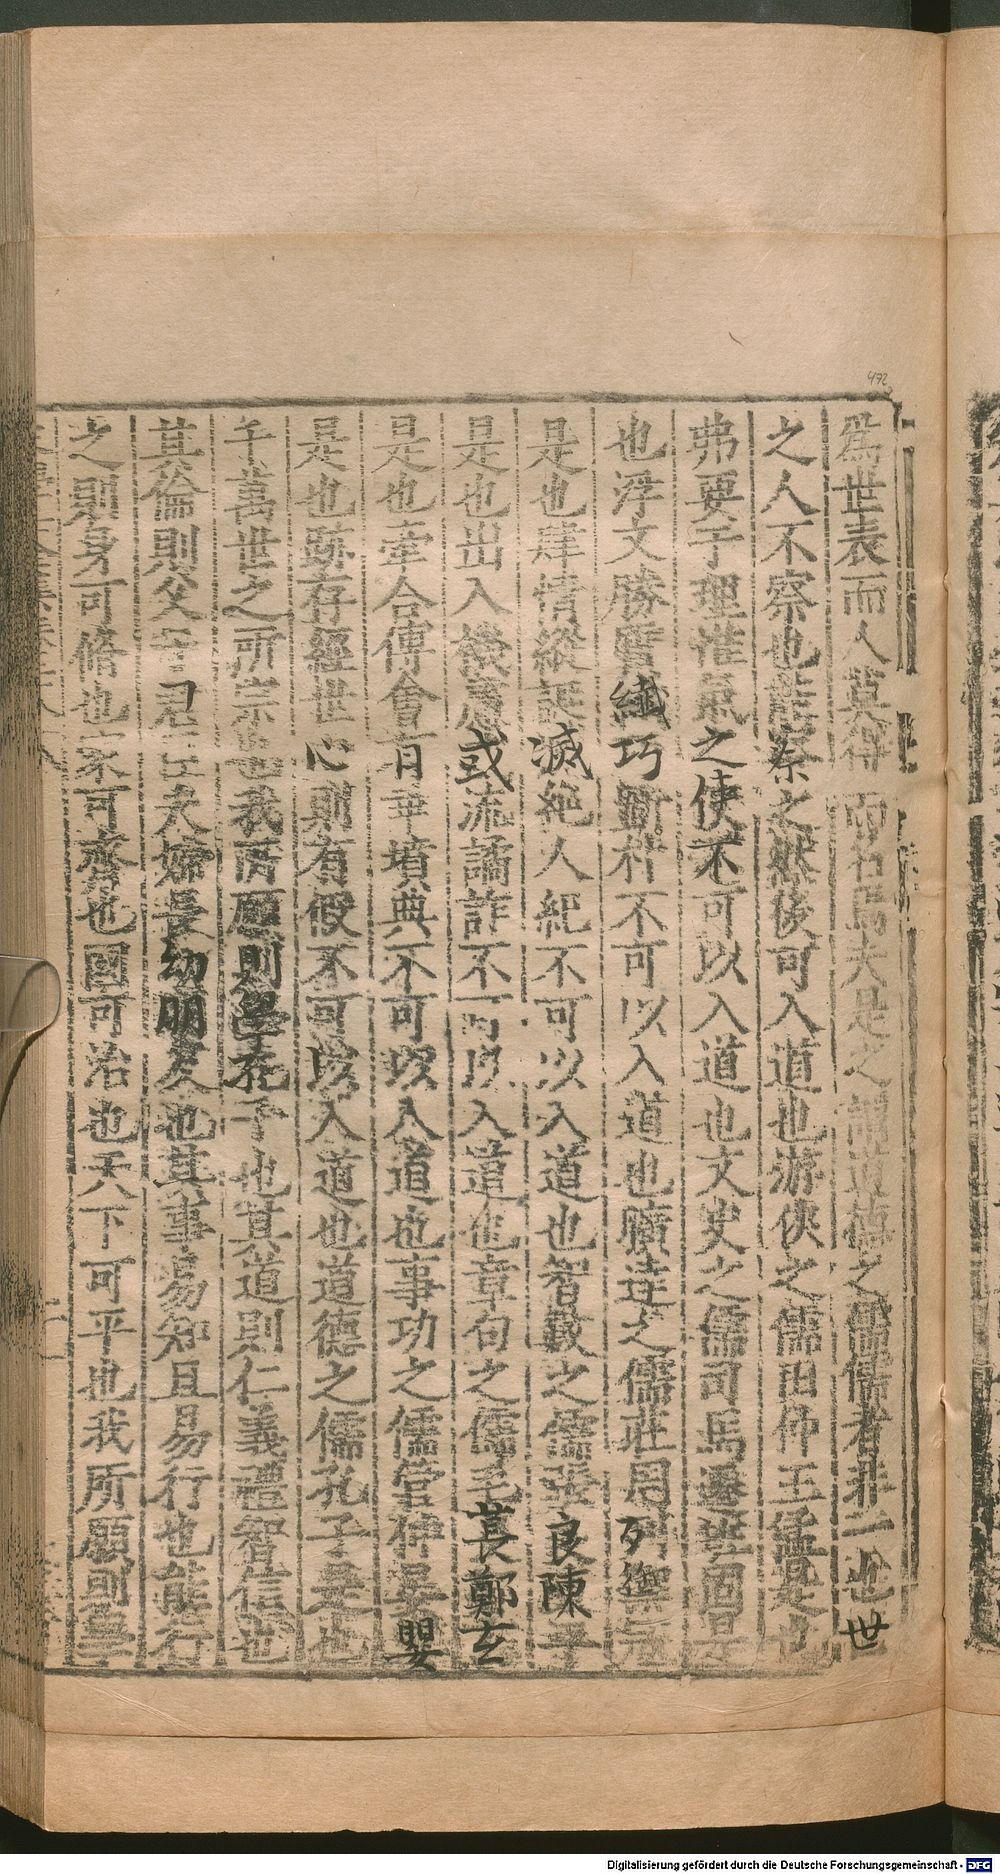 472
爲世表而人莫得而名焉夫是之謂道德之儒儒者非一也世
之人不察也能察之然後可入道也游俠之儒田仲王猛是也
弗要于理惟氣之使不可以入道也文史之儒司馬遷班固是
也浮文勝質纖巧斲朴不可以入道也曠達之儒莊周列禦寇
是也肆情縱誕滅絕人紀不可以入道也智數之儒張良陳平
是也出入機慮或流譎詐不可以入道也章句之儒毛萇鄭玄
是也牽合傅會有乖墳典不可以入道也事功之儒管仲晏嬰
是也跡存經世心則有假不可以入道也道德之儒孔子是也
千萬世之所宗也我所願則學孔子也其道則仁義禮智信也
其倫則父子君臣夫婦長幼朋友也其事易知且易行也能行
之則身可脩也家可齊也國可治也天下可平也我所願則學
Digitalisierung gefördert durch die Deutsche Forschungsgemeinschaft - DFG